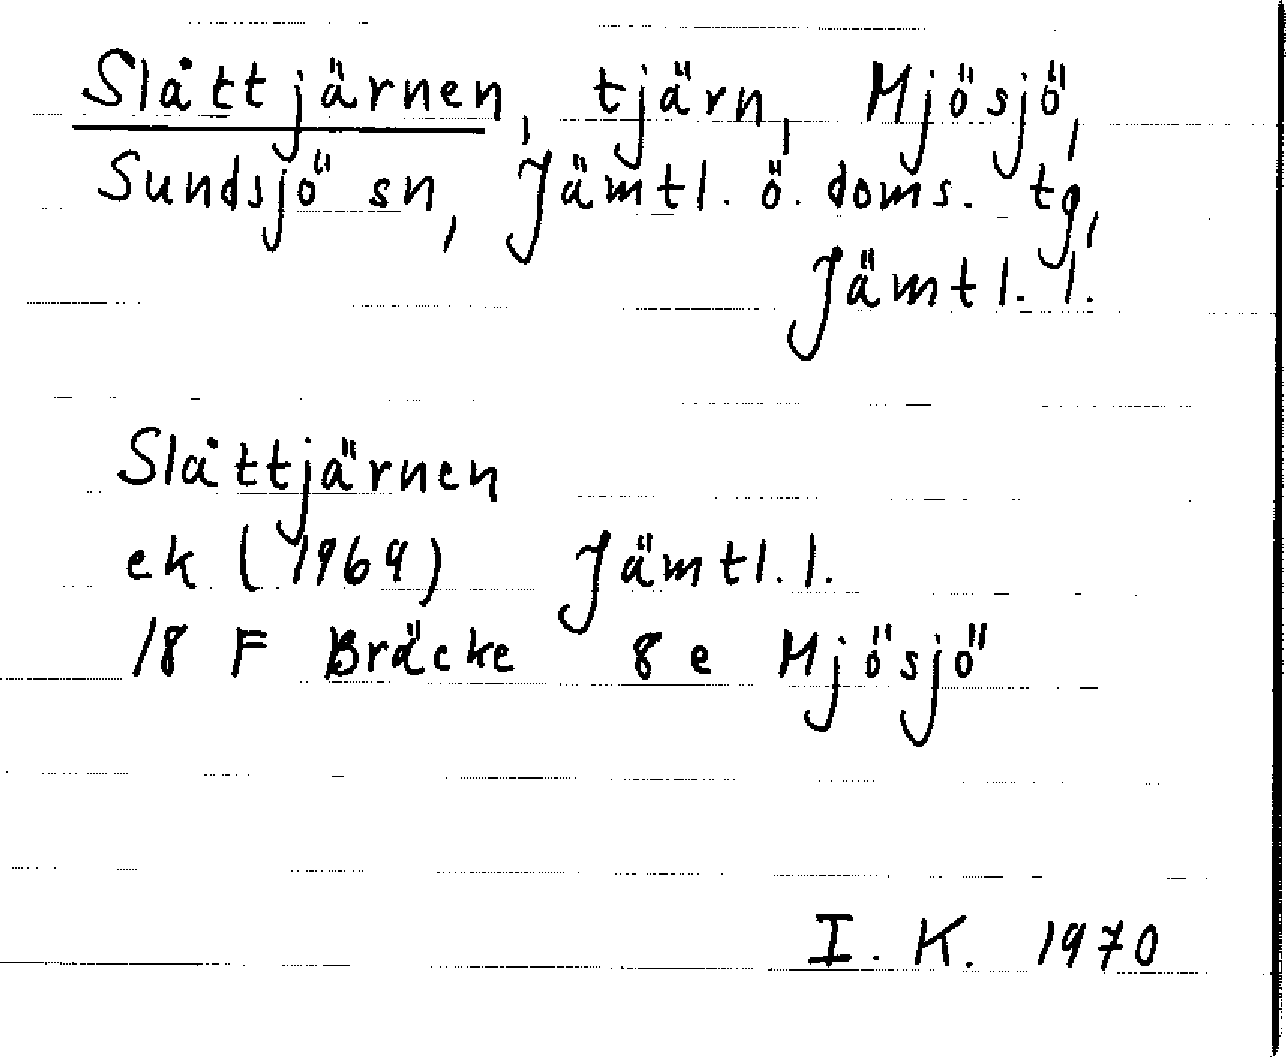 Slåttjärnen, tjärn, Mjösjö,
Sundsjö sn, Jämtl. ö. doms. tg,
Jämtl. l.
Slåttjärnen
ek (1969) Jämtl. l.
18 F Bräcke 8 e Mjösjö
I. K. 1970